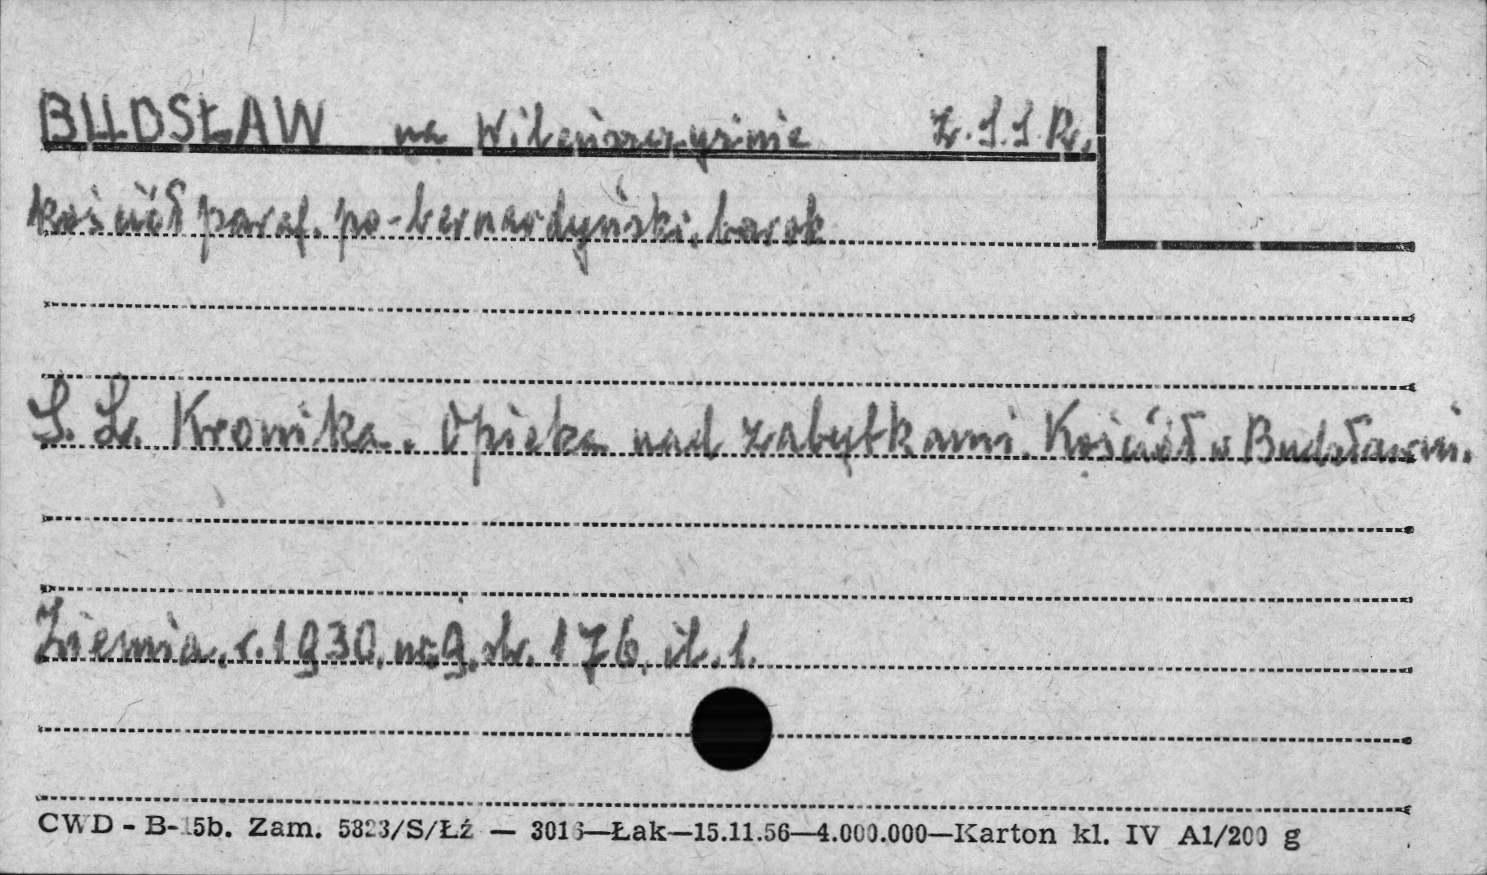 BUDSŁAW na Wileńszczyźnie Z.S.S.R.
kościół paraf. po-bernardyński, barok
S. Lr. Kronika. Opieka nad zabytkami. Kościół w Budsławiu.
Ziemia. r. 1930. nr 9. str. 176. il. 1.
CWD - B-15b. Zam. 5823/S/Łź — 3016—Łak—15.11.56—4.000.000—Karton kl. IV A1/200 g